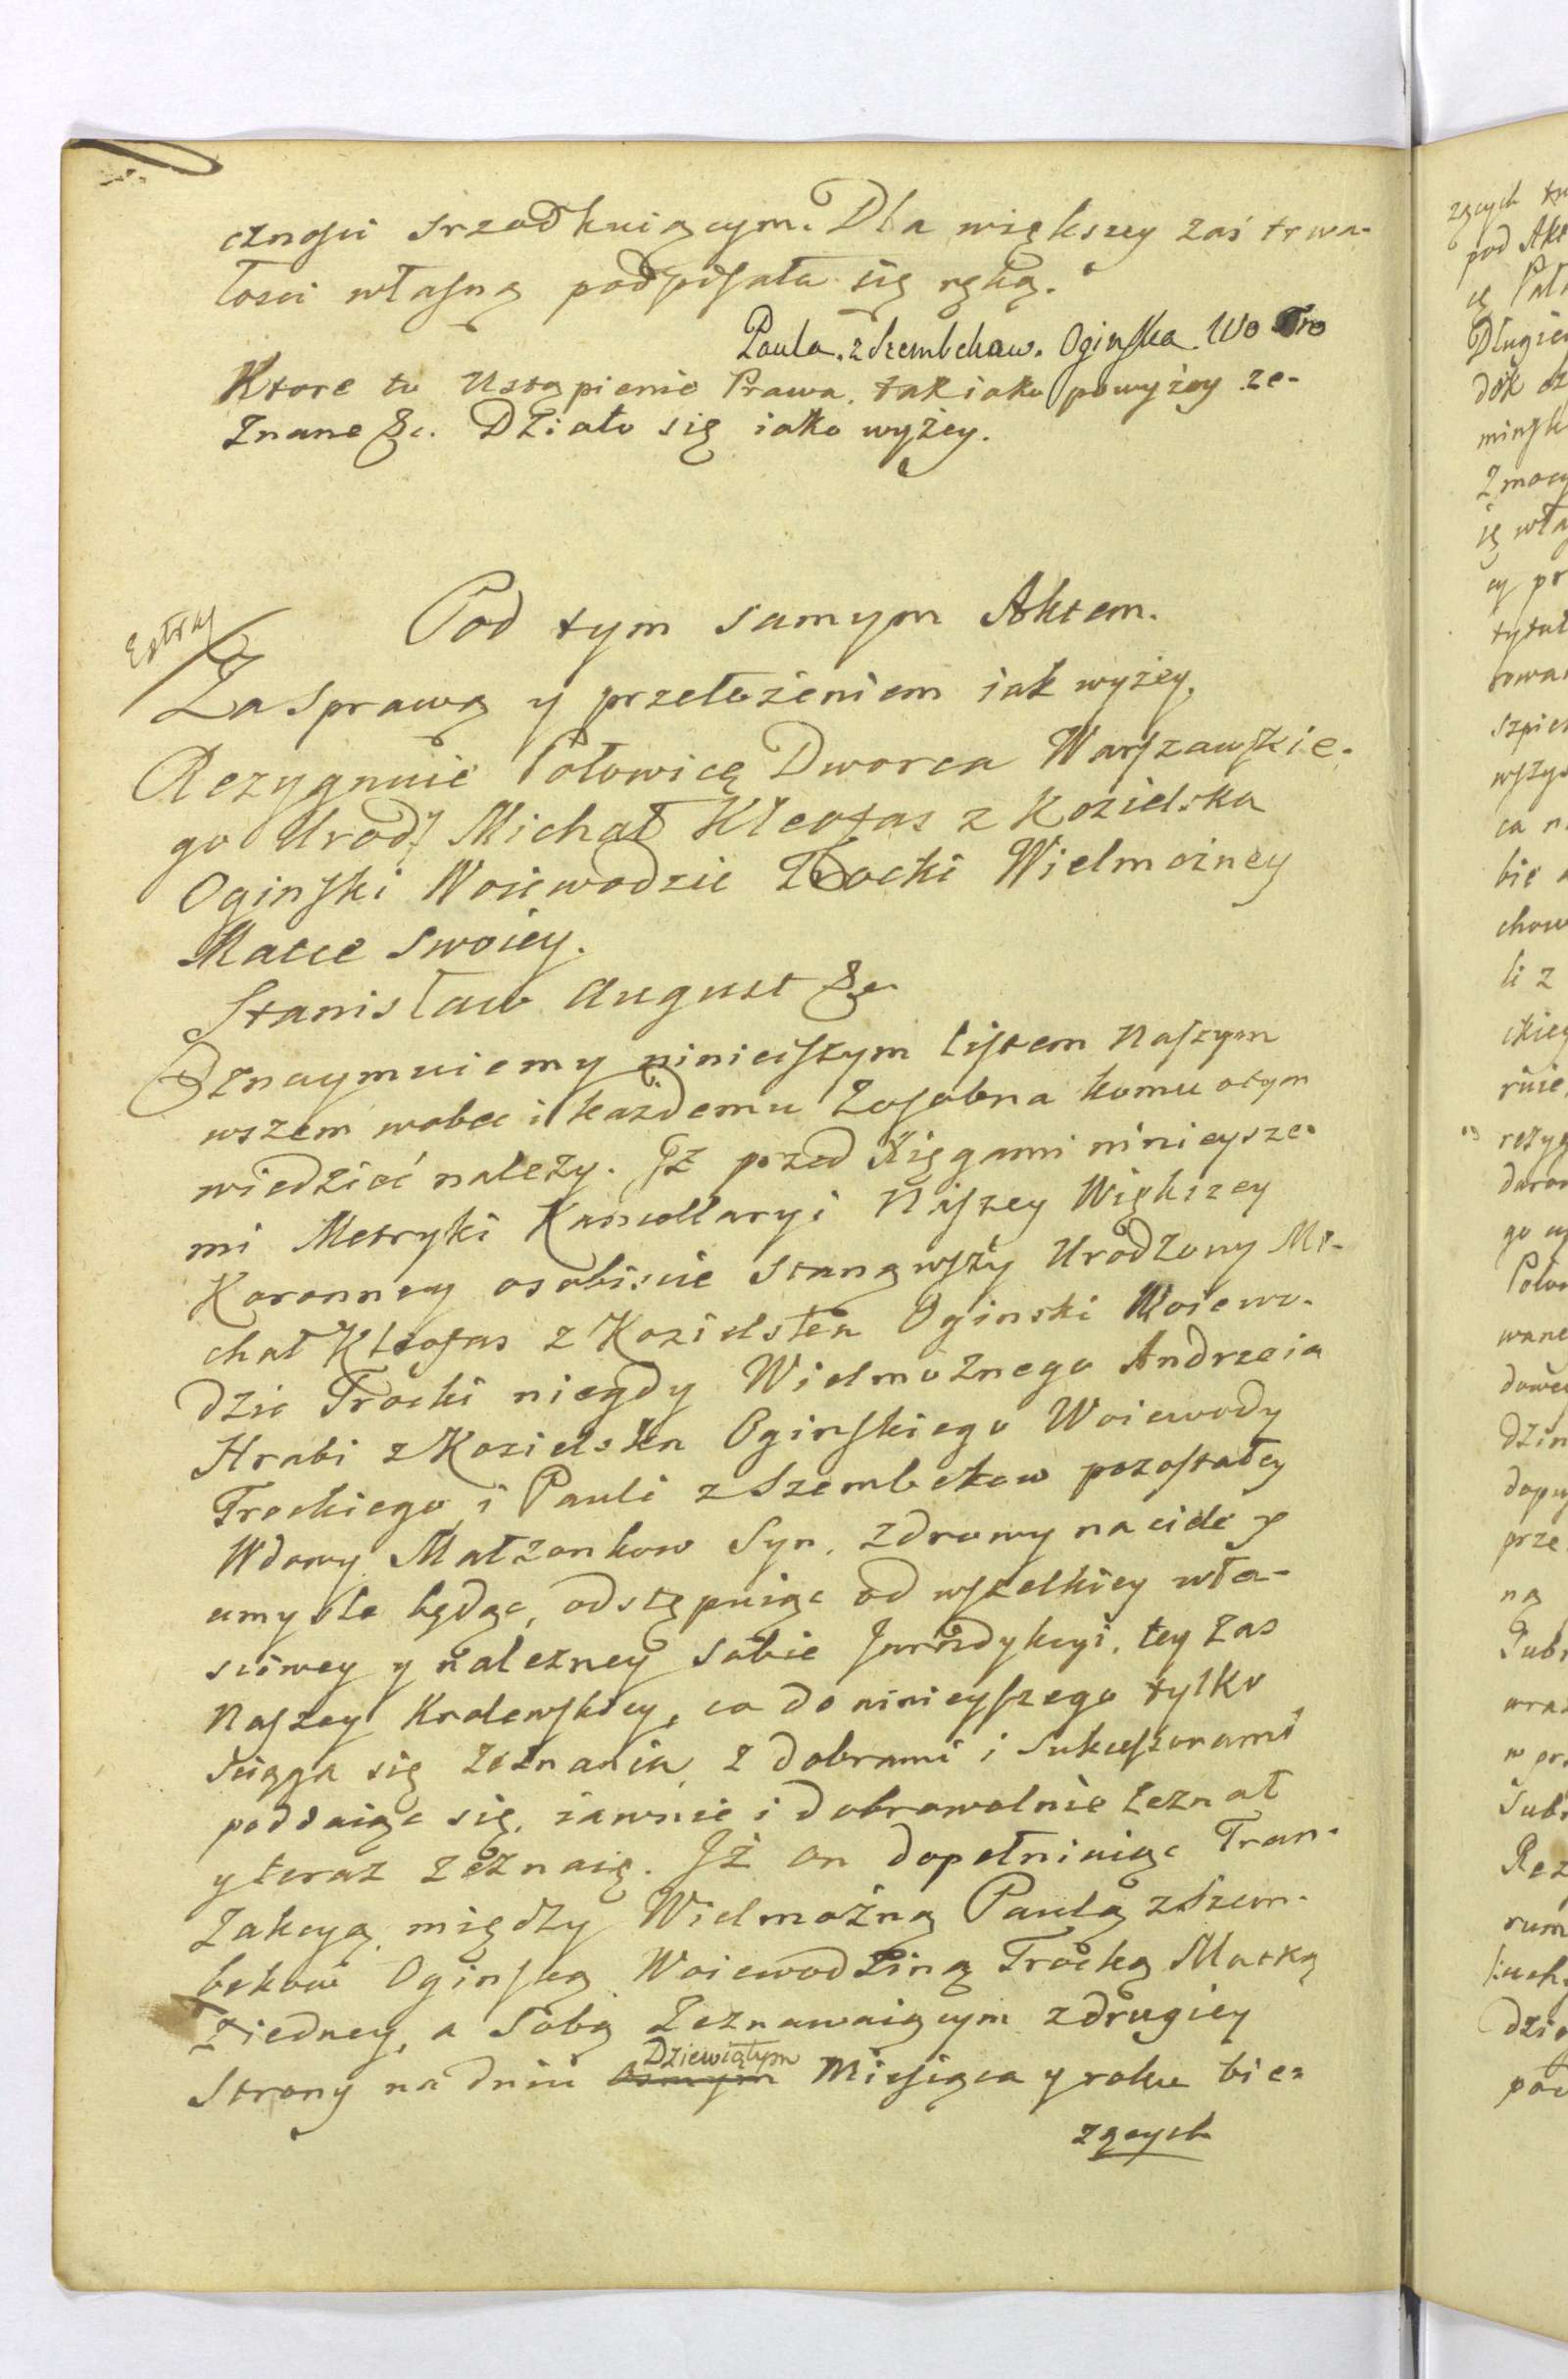 cznosci srzodkuiącym. Dla większey zaś trwa-
łosci własną podpisała się ręką.
Paula. z Szembekow. Oginska. Wo Tro
Ktore to Ustąpienie Prawa. tak iako powyżey ze-
znane &c. Działo się iako wyżey.
Extra
Pod tym samym Aktem.
Za Sprawą y przełożeniem iak wyżey,
Rezygnuie Połowicę Dworca Warszawskie-
go Urodz Michał Kleofas z Kozielska
Oginski Woiewodzic Trocki Wielmożney
Matce Swoiey.
Stanisław August &c.
Oznaymuiemy ninieiszym listem Naszym
wszem wobec i każdemu Zosobna komu otym
wiedzieć należy. Iż przed Xięgami ninieysze-
mi Metryki Kancellaryi Naszey Większey
Koronney osobiscie stanąwszy Urodzony Mi-
chał Kleofas z Kozielska Oginski Woiewo-
dzic Trocki niegdy Wielmożnego Andrzeia
Hrabi z Kozielska Oginskiego Woiewody
Trockiego i Pauli z Szembekow pozostałey
Wdowy Małżonkow Syn, zdrowy na ciele y
umysle będąc, odstępuiąc od wszelkiey wła-
sciwey y należney sobie Jurizdykcyi, tey zas
Naszey Krolewskiey, co do ninieyszego tylko
sciąga się Zeznania, z dobrami i Sukcessorami
poddaiąc się, iawnie i dobrowolnie zeznał
y teraz zeznaię. Iż on dopełniaiąc Tran-
zakcyą między Wielmożną Paulą z Szem-
bekow Oginską Woiewodziną Trocką Matką
z iedney, a Sobą Zeznawaiącym z drugiey
Strony na dniu Osmym Dziewiątym Miesiąca y roku bie-
zących